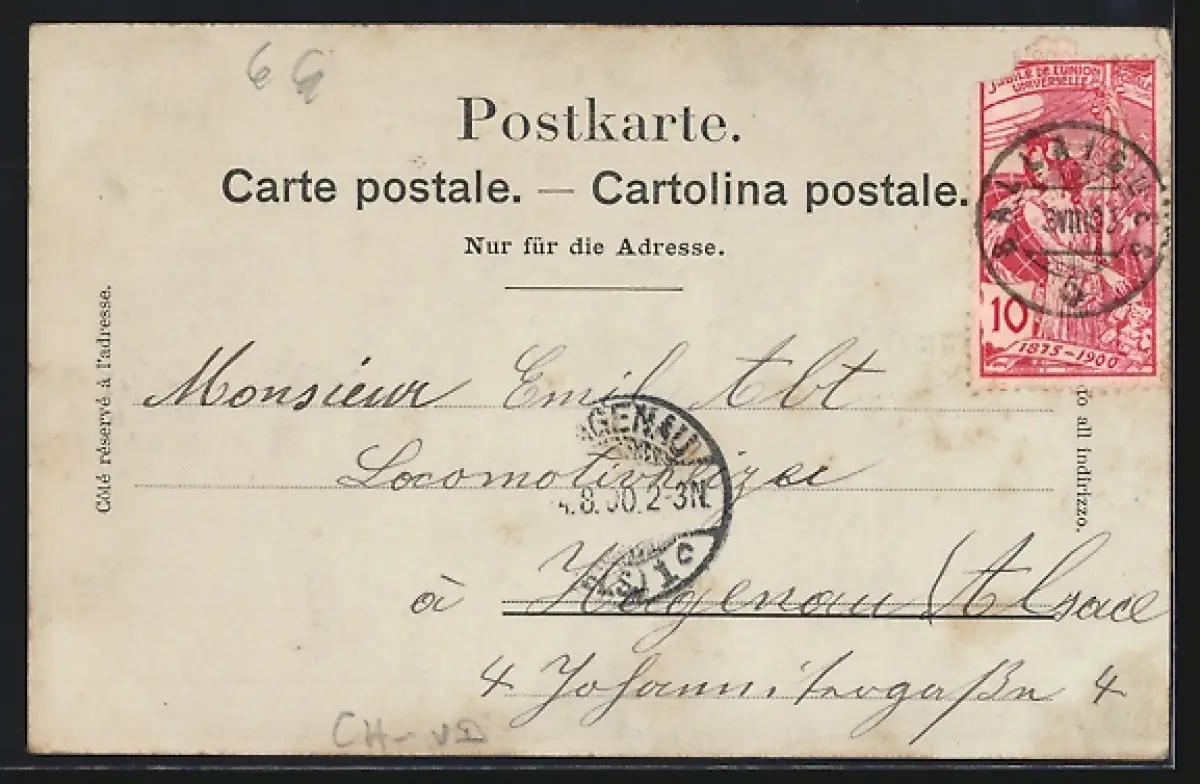 6 G
Postkarte.
Carte postale. — Cartolina postale.
Nur für die Adresse.
Côté réservé à l'adresse.
JUBILÉ DE L'UNION
UNIVERSELLE
10
1875-1900
BALLAIGUES
VIII
Monsieur Emil Abt
Locomotivheizer
à Hagenau / Alsace
4 Johannitergaße 4
AGENAU
.8.00.2-3N.
ELS) 1c
to all indirizzo.
CH-VD